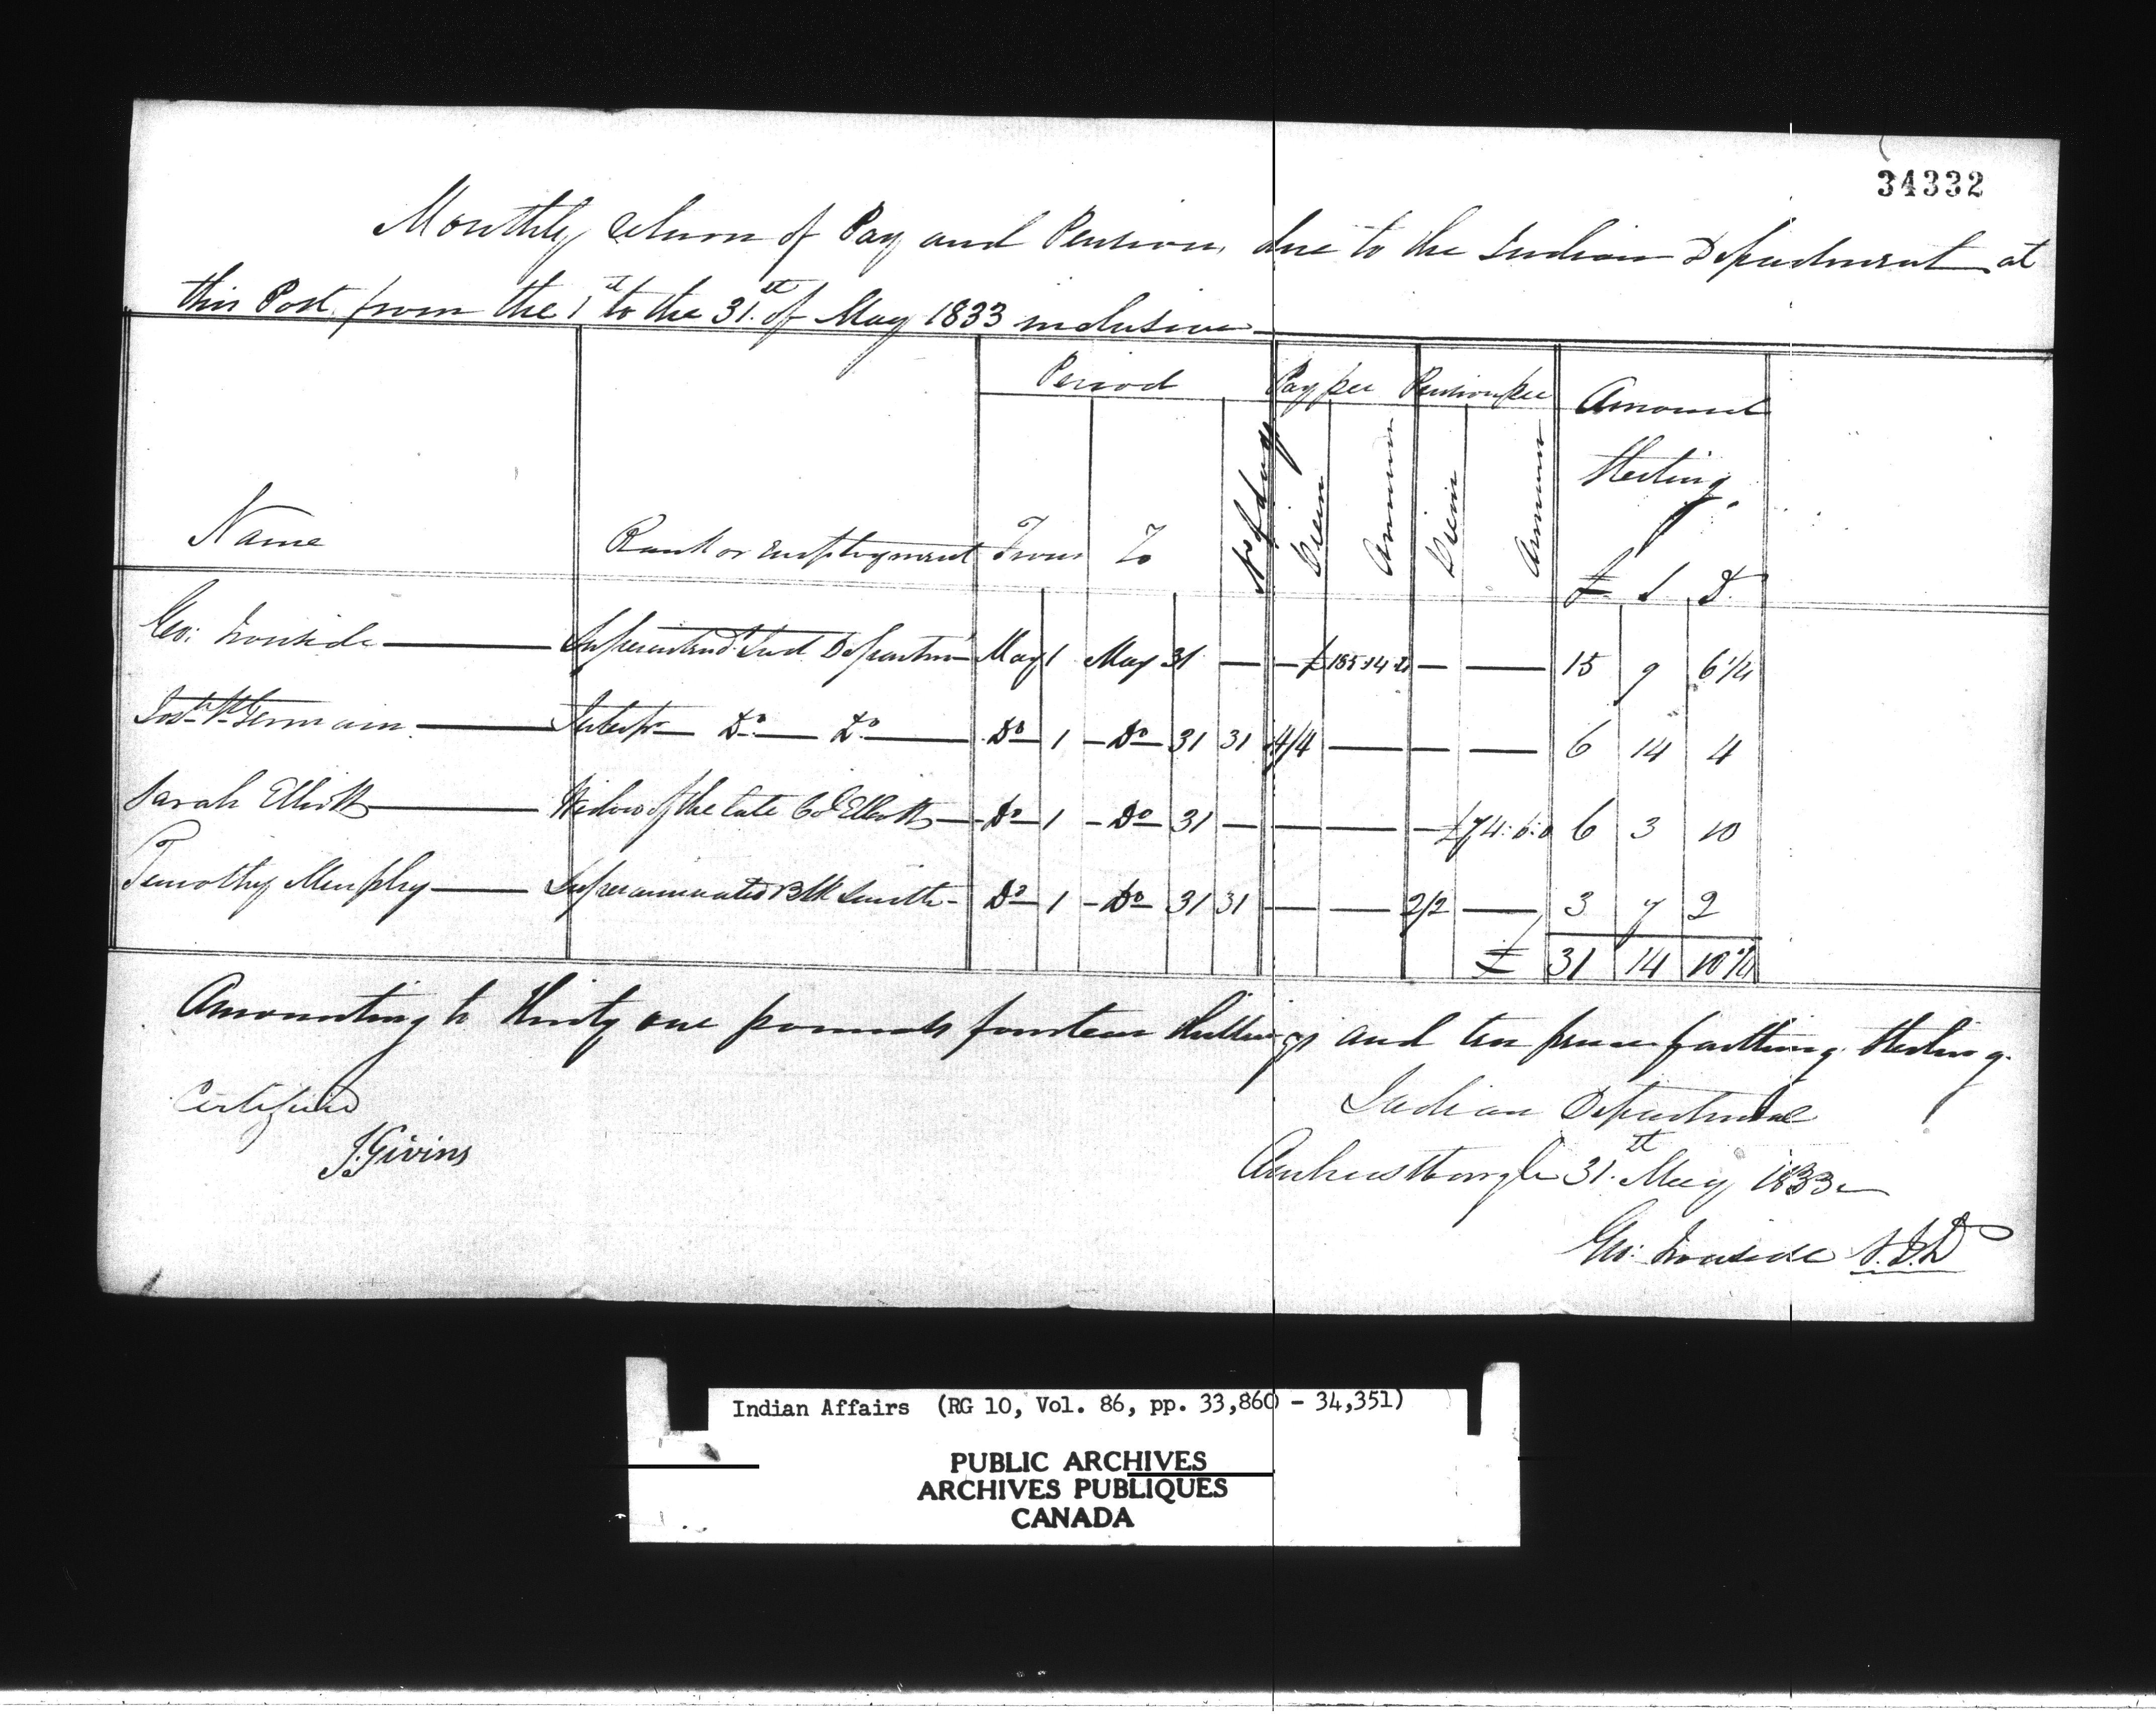 34332
Monthly Return of Pay and Pension, due to the Indian Department at
this Post from the 1st to the 31st of May 1833 inclusive
Period Pay per Pension per Amount
Sterling
Name Rank or Employment From To No of days Diem Annum Diem Annum £ S D
Geo: Ironside Superintend't Ind Departm May 1 May 31 £185 14 2 15 9 6 1/4
St Germain Interpr Do Do Do 1 Do 31 31 4/4 6 14 4
Sarah Elliott Widow of the late Col Elliott Do 1 Do 31 £74:6:0 6 3 10
Timothy Murphy Superannuated Blk Smith Do 1 Do 31 31 2/2 3 7 2
£ 31 14 10 1/4
Amounting to thirty one pounds fourteen shillings and ten pence farthing Sterling.
Indian Department
Amherstburgh 31st May 1833
Certified
J. Givins
Geo: Ironside S.I.D
Indian Affairs (RG 10, Vol. 86, pp. 33,860 - 34,351)
PUBLIC ARCHIVES
ARCHIVES PUBLIQUES
CANADA